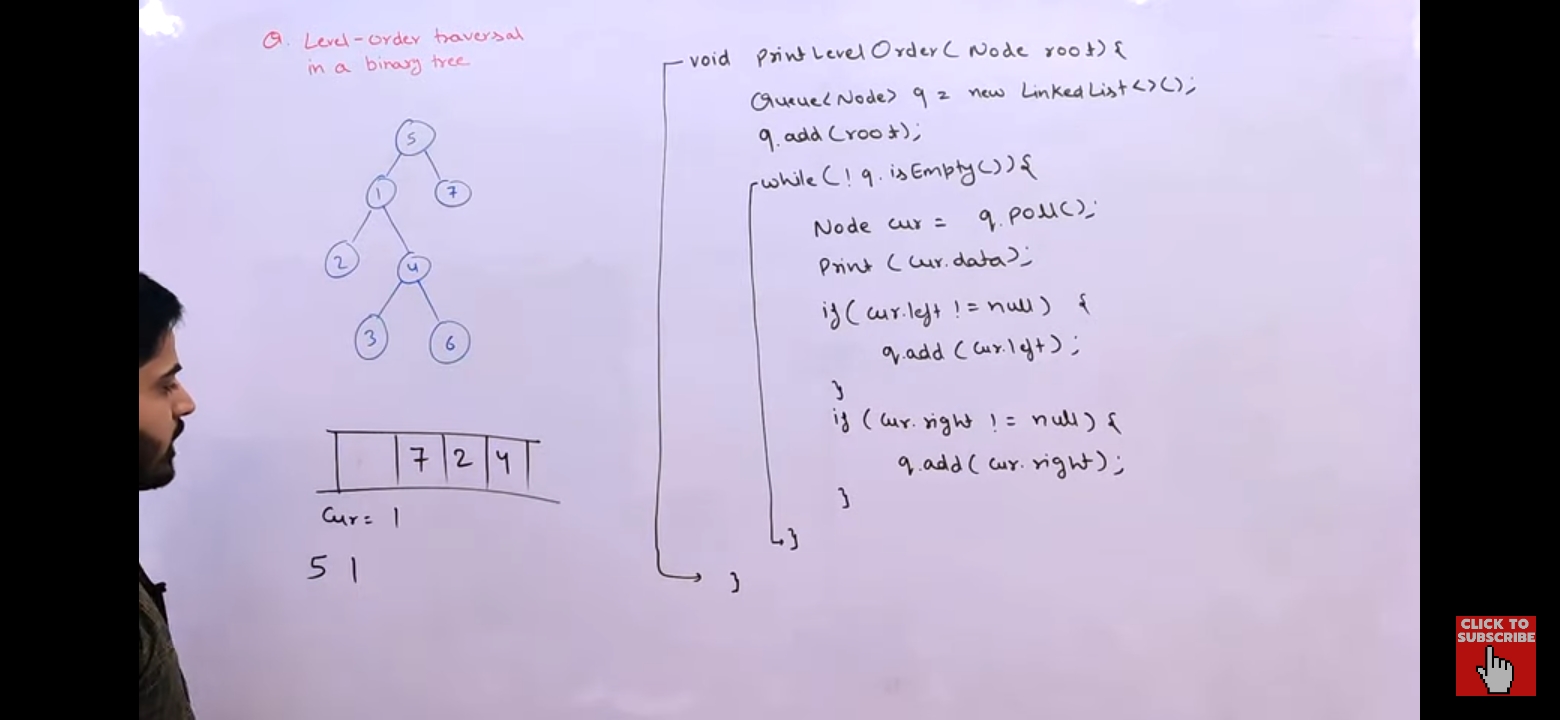 Q. Level-order traversal
in a binary tree
5
1
7
2
4
3
6
7 2 4
Cur = 1
5 1
void printLevelOrder( Node root){
Queue<Node> q = new LinkedList<>();
q.add(root);
while(! q.isEmpty()){
Node cur = q.poll();
Print (cur.data);
if( cur.left != null) {
q.add (cur.left);
}
if (cur.right != null) {
q.add( cur.right);
}
}
}
CLICK TO
SUBSCRIBE